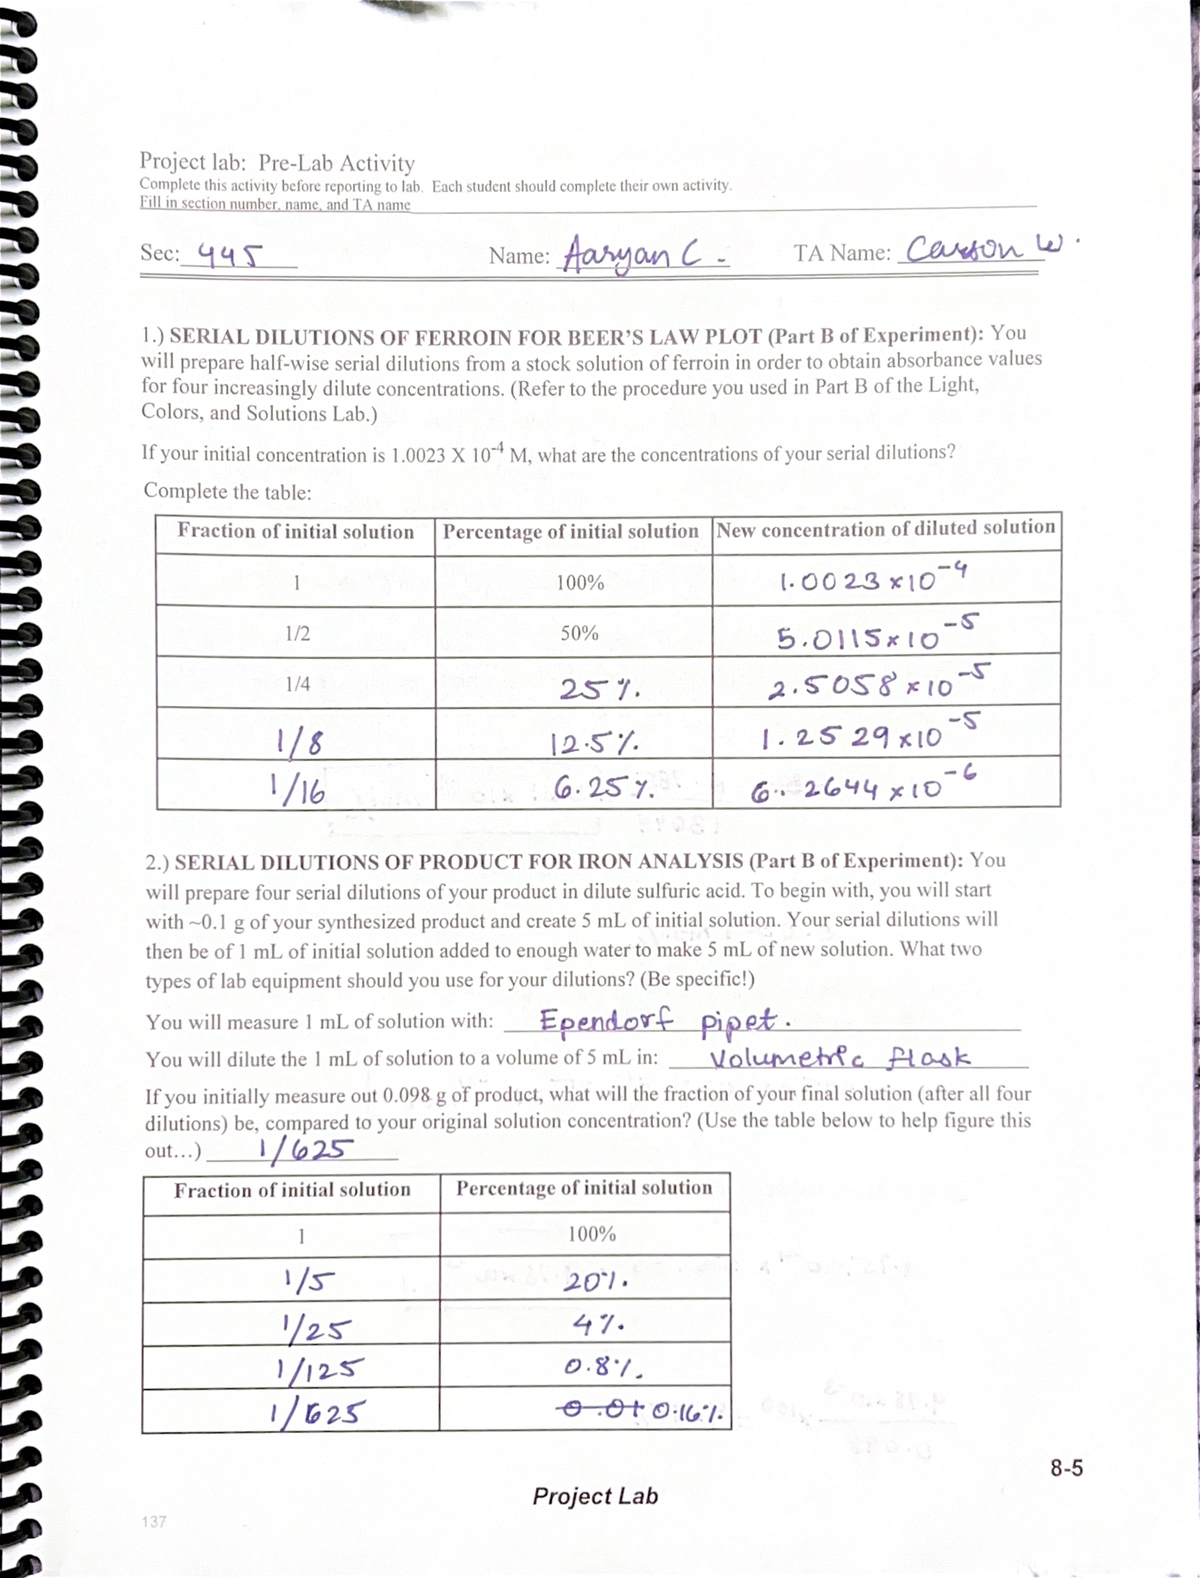 Project lab: Pre-Lab Activity
Complete this activity before reporting to lab. Each student should complete their own activity.
Fill in section number, name, and TA name
Sec: 445 Name: Aaryan C. TA Name: Carson W.
1.) SERIAL DILUTIONS OF FERROIN FOR BEER'S LAW PLOT (Part B of Experiment): You
will prepare half-wise serial dilutions from a stock solution of ferroin in order to obtain absorbance values
for four increasingly dilute concentrations. (Refer to the procedure you used in Part B of the Light,
Colors, and Solutions Lab.)
If your initial concentration is 1.0023 X 10⁻⁴ M, what are the concentrations of your serial dilutions?
Complete the table:
Fraction of initial solution Percentage of initial solution New concentration of diluted solution
1 100% 1.0023 × 10⁻⁴
1/2 50% 5.0115 × 10⁻⁵
1/4 25 % 2.5058 × 10⁻⁵
1/8 12.5 % 1.2529 × 10⁻⁵
1/16 6.25 % 6.2644 × 10⁻⁶
2.) SERIAL DILUTIONS OF PRODUCT FOR IRON ANALYSIS (Part B of Experiment): You
will prepare four serial dilutions of your product in dilute sulfuric acid. To begin with, you will start
with ~0.1 g of your synthesized product and create 5 mL of initial solution. Your serial dilutions will
then be of 1 mL of initial solution added to enough water to make 5 mL of new solution. What two
types of lab equipment should you use for your dilutions? (Be specific!)
You will measure 1 mL of solution with: Ependorf pipet.
You will dilute the 1 mL of solution to a volume of 5 mL in: Volumetric flask
If you initially measure out 0.098 g of product, what will the fraction of your final solution (after all four
dilutions) be, compared to your original solution concentration? (Use the table below to help figure this
out...) 1/625
Fraction of initial solution Percentage of initial solution
1 100%
1/5 20%.
1/25 4%.
1/125 0.8%.
1/625 0.16%.
8-5
Project Lab
137